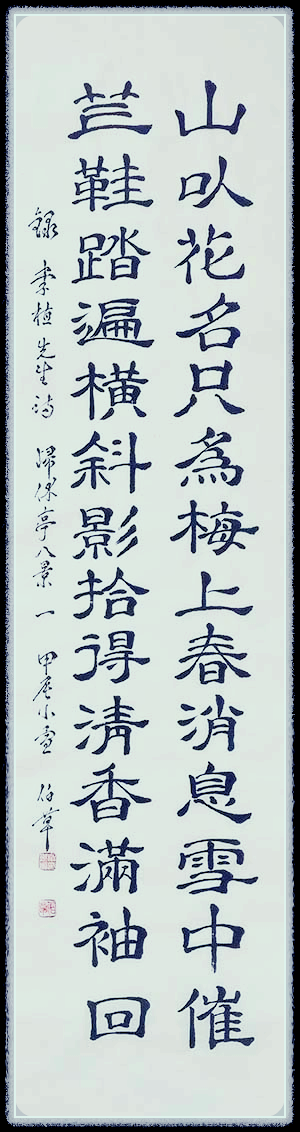 山以花名只爲梅上春消息雪中催
芒鞋踏遍橫斜影拾得淸香滿袖回
錄 李植先生詩 歸休亭八景 一 甲辰小雪